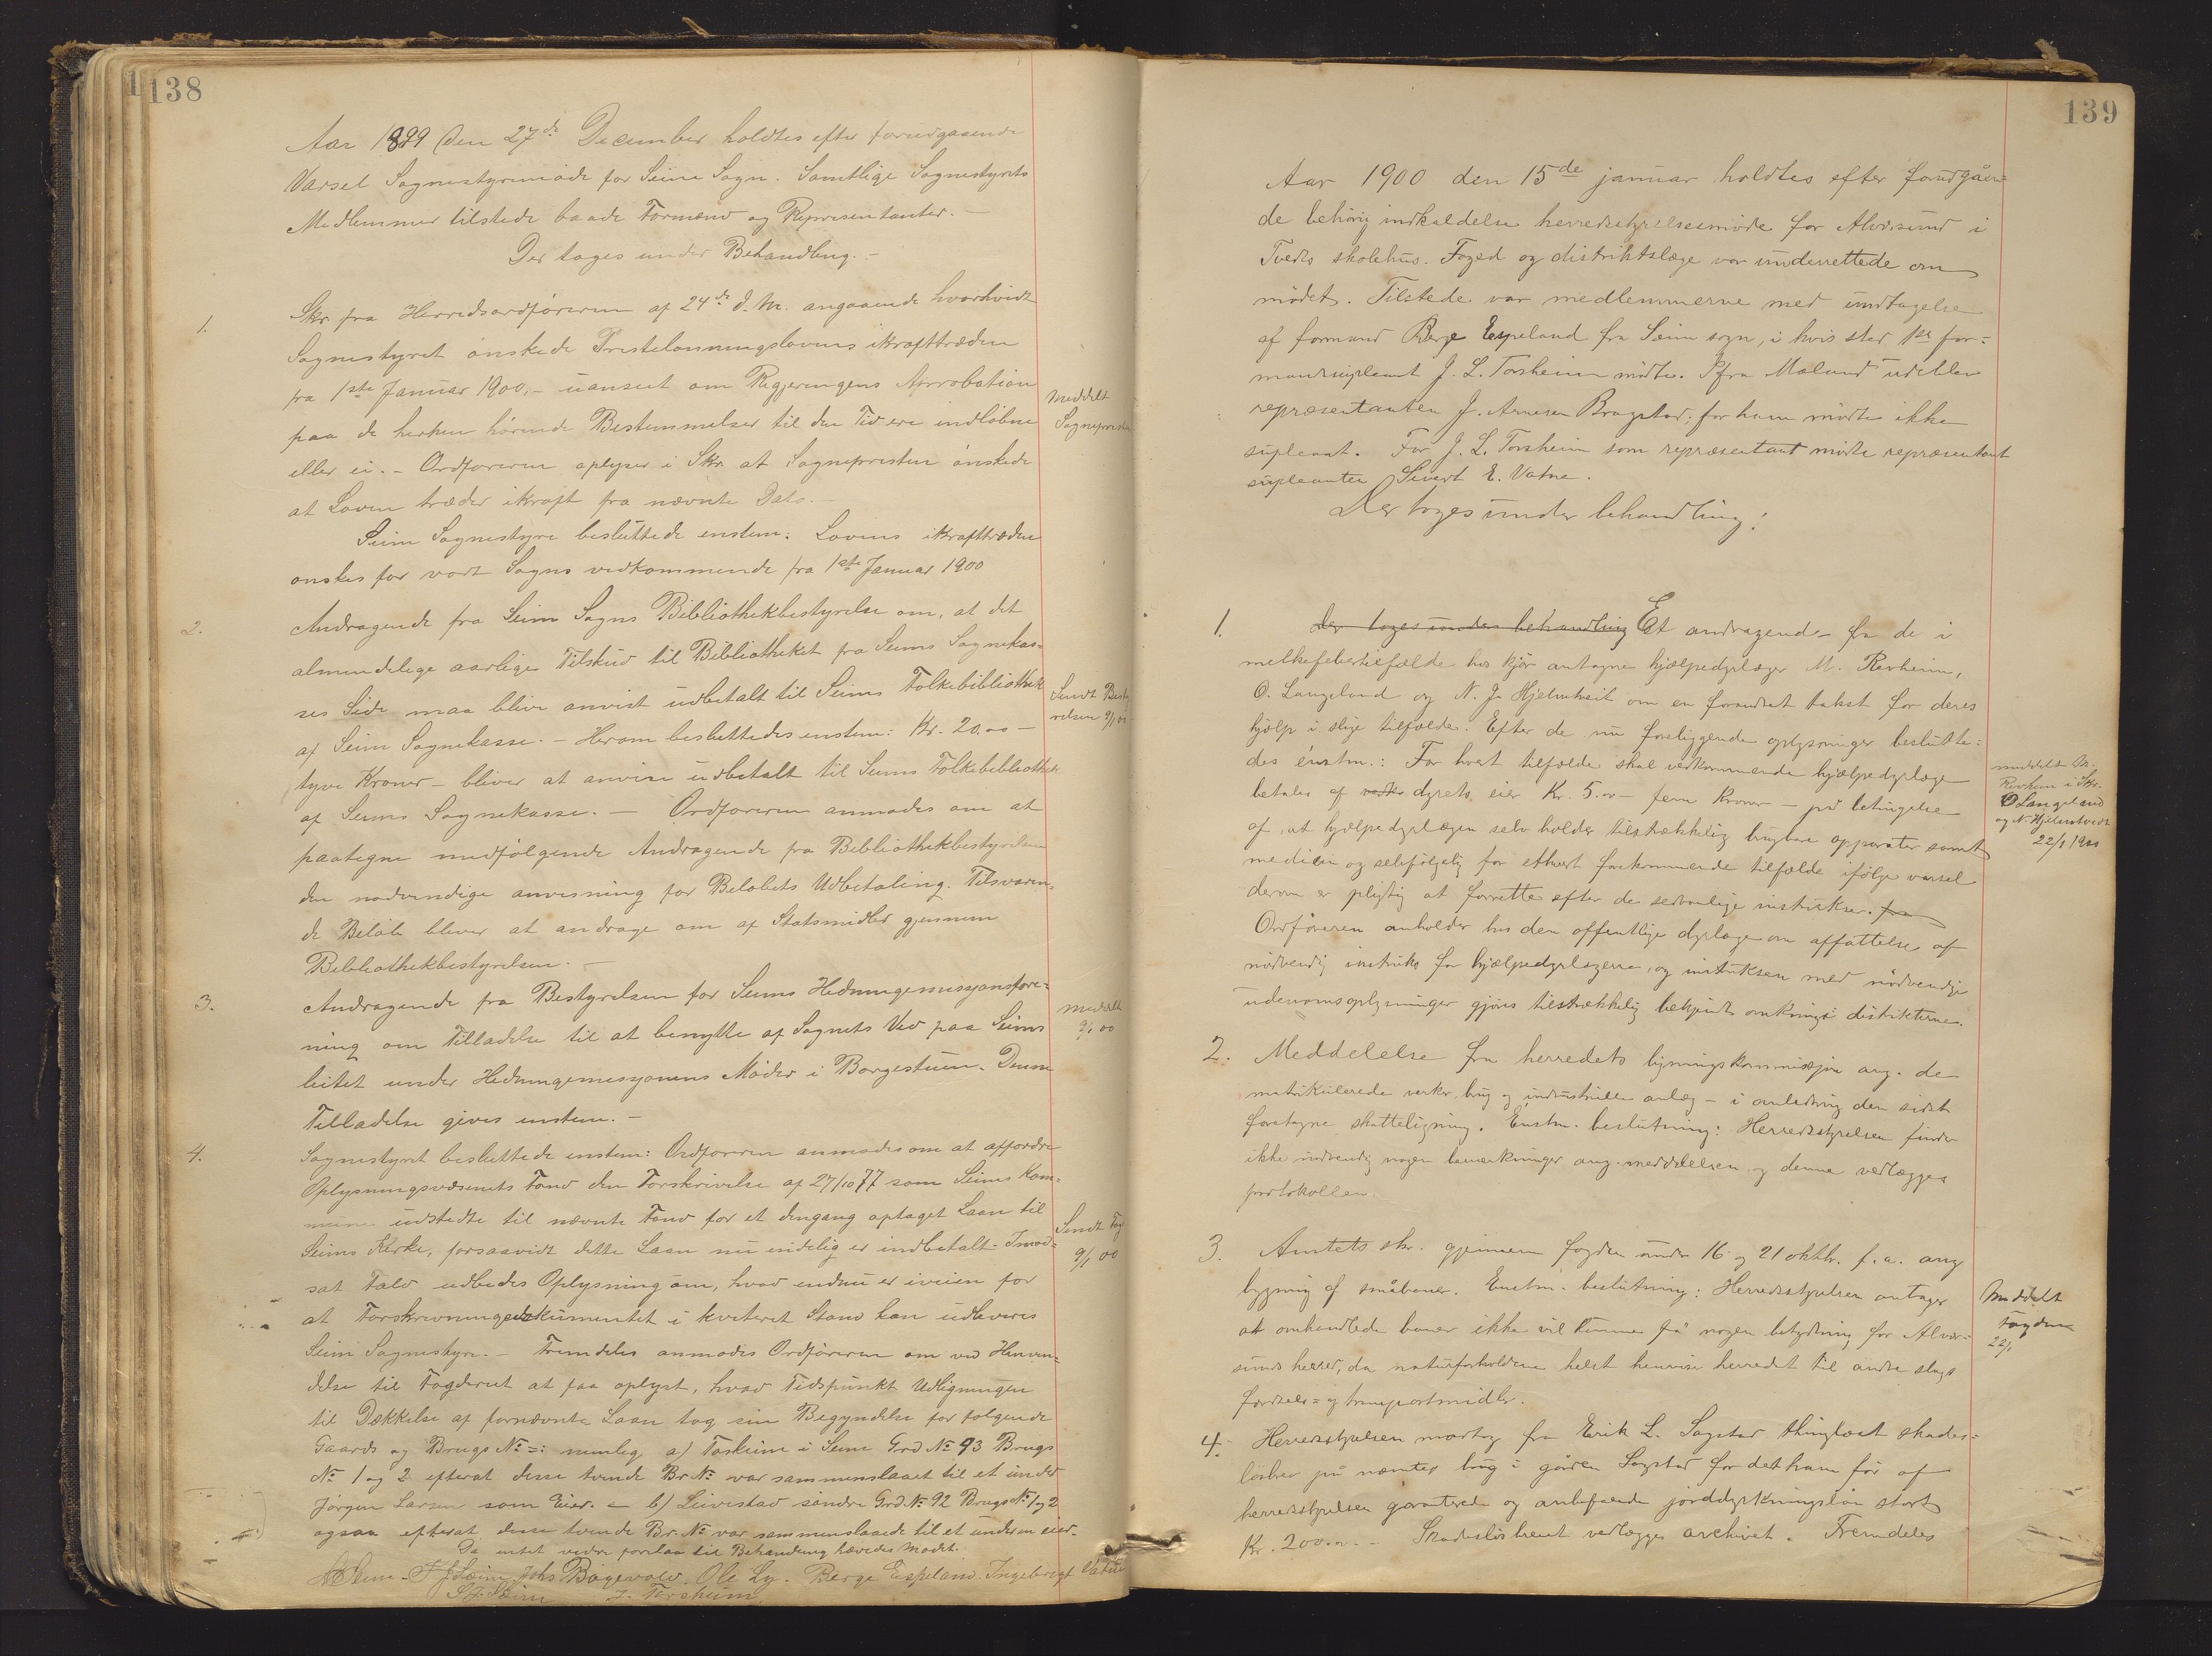 138
Aar 1899 den 27de December holdtes efter forudgaaende
Varsel Sognestyremöde for Seim Sogn. Samtlige Sognestyrets
Medlemmer tilstede baade Formænd og Repræsentanter. –
Der toges under Behandling. –
1. Skr. fra Herredsordföreren af 24de d. M. angaaende hvorvidt
Sognestyret önskede Prestelonningslovens ikrafttræden
fra 1ste Januar 1900, – uanseet om Regjeringens Approbation
paa de herhen hörende Bestemmelser til den Tid ere indlöbne
eller ei. – Ordföreren oplyser i Skr. at Sognepresten önskede
at Loven træder ikraft fra nævnte Dato. –
Meddelt
Sognepresten
Seim Sognestyre besluttede enstem: Lovens ikrafttræden
önskes for vort Sogns vedkommende fra 1ste Januar 1900
2. Andragende fra Seim Sogns Bibliothekbestyrelse om, at det
almindelige aarlige Tilskud til Bibliotheket fra Seims Sognekas=
ses Side maa blive anvist udbetalt til Seims Folkebibliothek
af Seim Sognekasse. – Herom besluttedes enstem: Kr. 20.00 –
tyve Kroner – bliver at anvise udbetalt til Seims Folkebibliothek
af Seims Sognekasse. – Ordföreren anmodes om at
paategne medfölgende Andragende fra Bibliothekbestyrelsen
den nödvendige anvisning for Belöbets Udbetaling. Tilsvaren=
de Belöb bliver at andrage om af Statsmidler gjennem
Bibliothekbestyrelsen. –
Sendt Besty
relsen 9/1 00
3. Andragende fra Bestyrelsen for Seims Hedningemissjonsfore=
ning om Tilladelse til at benytte af Sognets Ved paa Seims
leitet under Hedningemissjonens Möder i Borgestuen. Denne
Tilladelse gives enstem. –
Meddelt
9/1 00
4. Sognestyret besluttede enstem: Ordföreren anmodes om at affordre
Oplysningsvæsenets Fond den Forskrivelse af 27/10 77 som Seims Kom=
mune udstedte til nævnte Fond for et dengang optaget Laan til
Seims Kirke, forsaavidt dette Laan nu endelig er indbetalt. I mod=
sat Fald udbedes Oplysning om, hvad endnu er iveien for
at Forskrivningsdokumentet i kviteret Stand kan udleveres
Seim Sognestyre. – Fremdeles anmodes Ordföreren om ved Henven=
delse til Fogderiet at faa oplyst, hvad Tidspunkt Udligningen
til Dækkelse af fornævnte Laan tog sin Begyndelse for fölgende
Gaards og Brugs No =: nemlig a) Toskeim i Seim Grd No 93 Brugs
No 1 og 2 efterat disse tvende Br No var sammenslaaet til et under
Jörgen Larsen som Eier. – b) Leivestad söndre Grd. No 92 Brugs No 1 og 2
ogsaa efterat disse tvende Br. No var sammenslaaede til et under en eier.
Sendt Fog
9/1 00
Da intet videre forelaa til Behandling hævedes Mödet.
Johs Bogevold. Ole Ly. Berge Espeland. Ingebrigt Vatne
J. Torsheim
139
Aar 1900 den 15de januar holdtes efter forudgåen=
de behörig indkaldelse herredsstyrelsesmöde for Alversund i
Tvedts skolehus. Foged og distriktslæge var underrettede om
mödet. Tilstede var medlemmerne med undtagelse
af formand Berge Espeland fra Seim sogn, i hvis sted 1ste for=
mandsupleant J. L. Torsheim mödte. Ifra Mæland udeblev
repræsentanten J. Arnesen Brogstad; for ham mödte ikke
supleant. For J. L. Torsheim som repræsentant mödte repræsentant
supleanten Sivert E. Vatne.
Der toges under behandling:
1. Der toges under behandling Et andragende fra de i
melkefebertilfælde hos kjör antagne hjælpedyrlæger M. Revheim,
O. Langeland og N. J. Hjelmtveit om en forandret takst for deres
hjælp i slige tilfælde. Efter de nu foreliggende oplysninger beslutte=
des enstm.: For hvert tilfælde skal vedkommende hjælpedyrlæge
betales af dyrets eier Kr. 5.00 – fem kroner – på betingelse
af, at hjælpedyrlægen selv holder tilstrækkelig brugbare apparater samt
medicin og selvfölgelig for ethvert forekommende tilfælde ifölge varsel
derom er pligtig at forrette efter de sedvanlige instrukser. fra
Ordföreren anholder hos den offentlige dyrlæge om affattelse af
nödvendig instruks for hjælpedyrlægerne, og instruksen med nödvendige
udenomsoplysninger gjöres tilstrækkelig bekjendt omkring i distrikterne.
meddelt M.
Revheim i Skr.
O Langeland
og N. Hjelmtvedt
22/1 1900
2. Meddelelse fra herredets ligningskommissjon ang. de
matrikulerede verker, brug og industrielle anlæg – i anledning den sidst
foretagne skatteligning. Enstm. beslutning: Herredsstyrelsen finder
ikke nödvendig nogen bemærkninger ang. meddelelsen og denne vedlægges
protokollen.
3. Amtets skr. gjennem fogden under 16 og 21 oktbr. f. a. ang
bygning af småbaner. Enstm. beslutning: Herredsstyrelsen antager
at omhandlede baner ikke vil kunne få nogen betydning for Alver=
sunds herred, da naturforholdene helst henviser herredet til andre slags
færdsels= og transportmidler.
Meddelt
Fogden
22/1
4. Herredsstyrelsen modtog fra Erik L. Sagstad thinglæst skades=
lösbrev på nævntes brug i gården Sagstad for det ham för af
herredsstyrelsen garanterede og anbefalede jorddyrkningslån stort
Kr. 200.00. – Skadeslösbrevet vedlægges archivet. Fremdeles